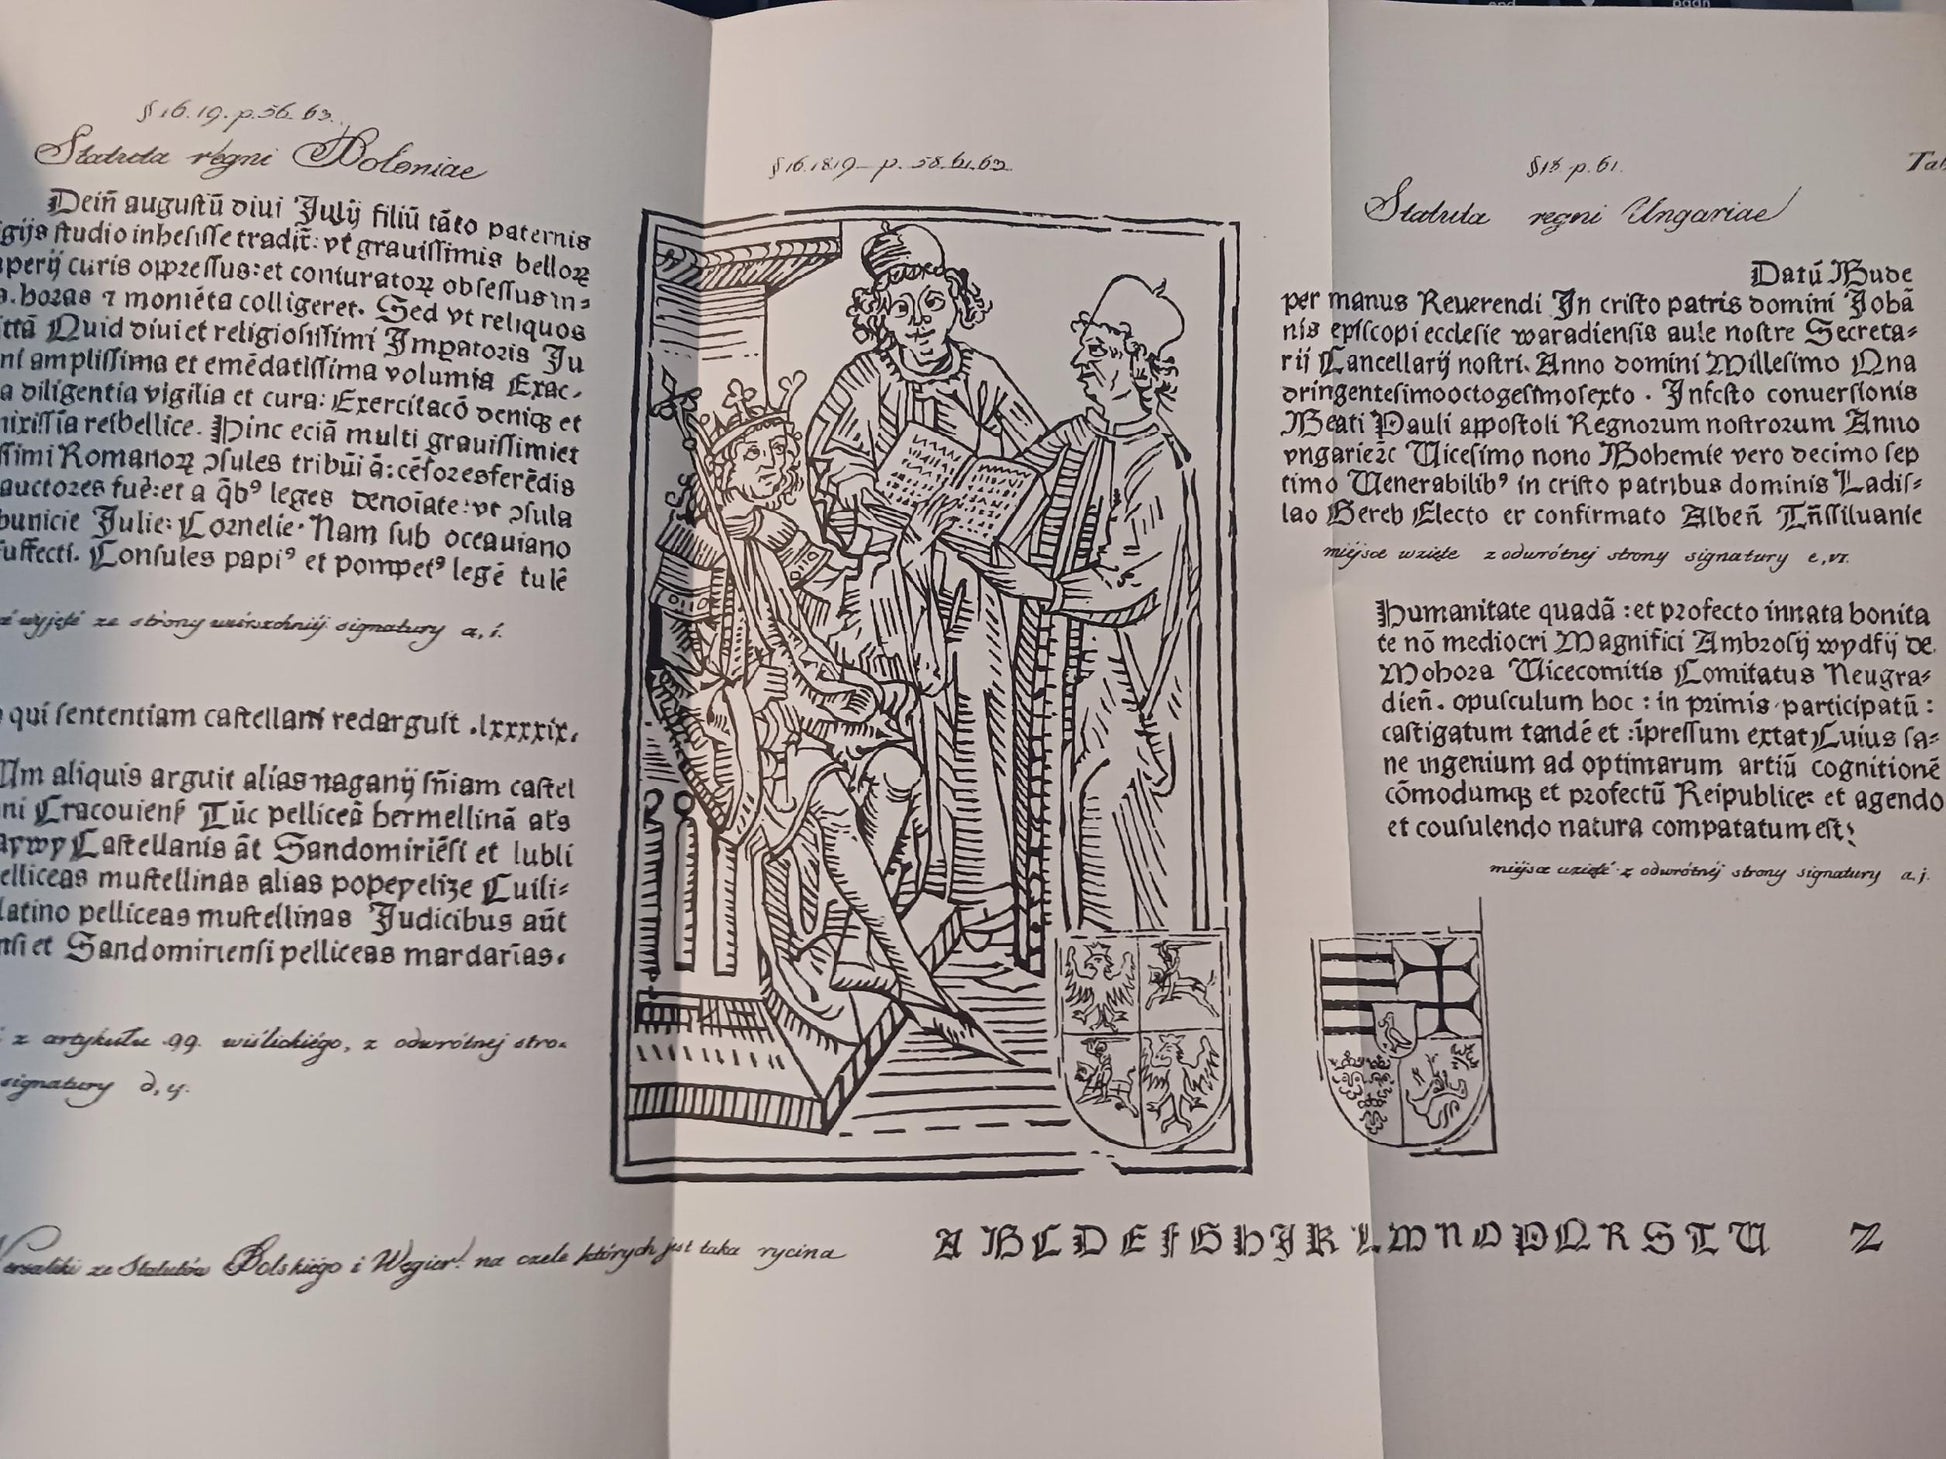 § 16. 19. p. 56. 63.
Statuta regni Poloniae
Deiñ auguſtũ diui Julij filiũ tãto paternis
ſtudio inheſiſſe tradit̃: vt grauiſſimis belloꝝ
curis oppreſſus: et coniuratoꝝ obſeſſus in⸗
horas ⁊ momẽta colligeret. Sed vt reliquos
Quid diui et religioſiſſimi Impatoris Ju
ampliſſima et emẽdatiſſima volumia Exac⸗
diligentia vigilia et cura: Exercitacõ deniqꝫ et
reibellice. Hinc eciã multi grauiſſimi et
Romanoꝝ ↄſules tribũi
auctores et a q̃bꝰ leges denoĩate: vt ↄſula
Julie: Cornelie. Nam ſub octauiano
Conſules papiꝰ et pompetꝰ legẽ tulẽ
wyjęte ze strony wierzchniej signatury a, i.
qui ſententiam caſtellani redarguit .lxxxxix.
aliquis arguit alias naganij ſñiam caſtel
Cracouienſ Tũc pelliceã hermellinã
Caſtellanis ãt Sandomiriẽſi et lubli
muſtellinas alias popeyelize Cuili⸗
pelliceas muſtellinas Judicibus aũt
et Sandomirienſi pelliceas mardarias.
z artykułu 99. wiślickiégo, z odwrótnej stro⸗
signatury d, ij.
§ 16. 18 19 – p. 58. 61. 63.
§ 18. p. 61.
Statuta regni Ungariae
Datũ Bude
per manus Reuerendi In criſto patris domini Johã
nis epiſcopi eccleſie waradienſis aule noſtre Secreta⸗
rij Cancellarij noſtri. Anno domini Milleſimo Qua
dringenteſimooctogeſimoſexto . Infeſto conuerſionis
Beati Pauli appoſtoli Regnorum noſtrorum Anno
vngarieꝛc Viceſimo nono Bohemie vero decimo ſep
timo Venerabilibꝰ in criſto patribus dominis Ladiſ⸗
lao Gereb Electo et confirmato Albeñ Tñſſiluanie
miéjsce wzięte z odwrótnej strony signatury e, vi.
Humanitate quadã : et profecto innata bonita
te nõ mediocri Magnifici Ambroſij wydfij de
Mohora Vicecomitis Comitatus Neugra⸗
dieñ. opuſculum hoc : in primis participatũ :
caſtigatum tandẽ et : ĩpreſſum extat Cuius ſa⸗
ne ingenium ad optimarum artiũ cognitionẽ
cõmodumqꝫ et profectũ Reipublice: et agendo
et couſulendo natura compatatum eſt;
miéjsce wzięte z odwrótnéj strony signatury a. j.
ze Statutów Polskiégo i Węgier. na czele których jest taka rycina
A B C D E F G H I K L M N O P Q R S T U Z